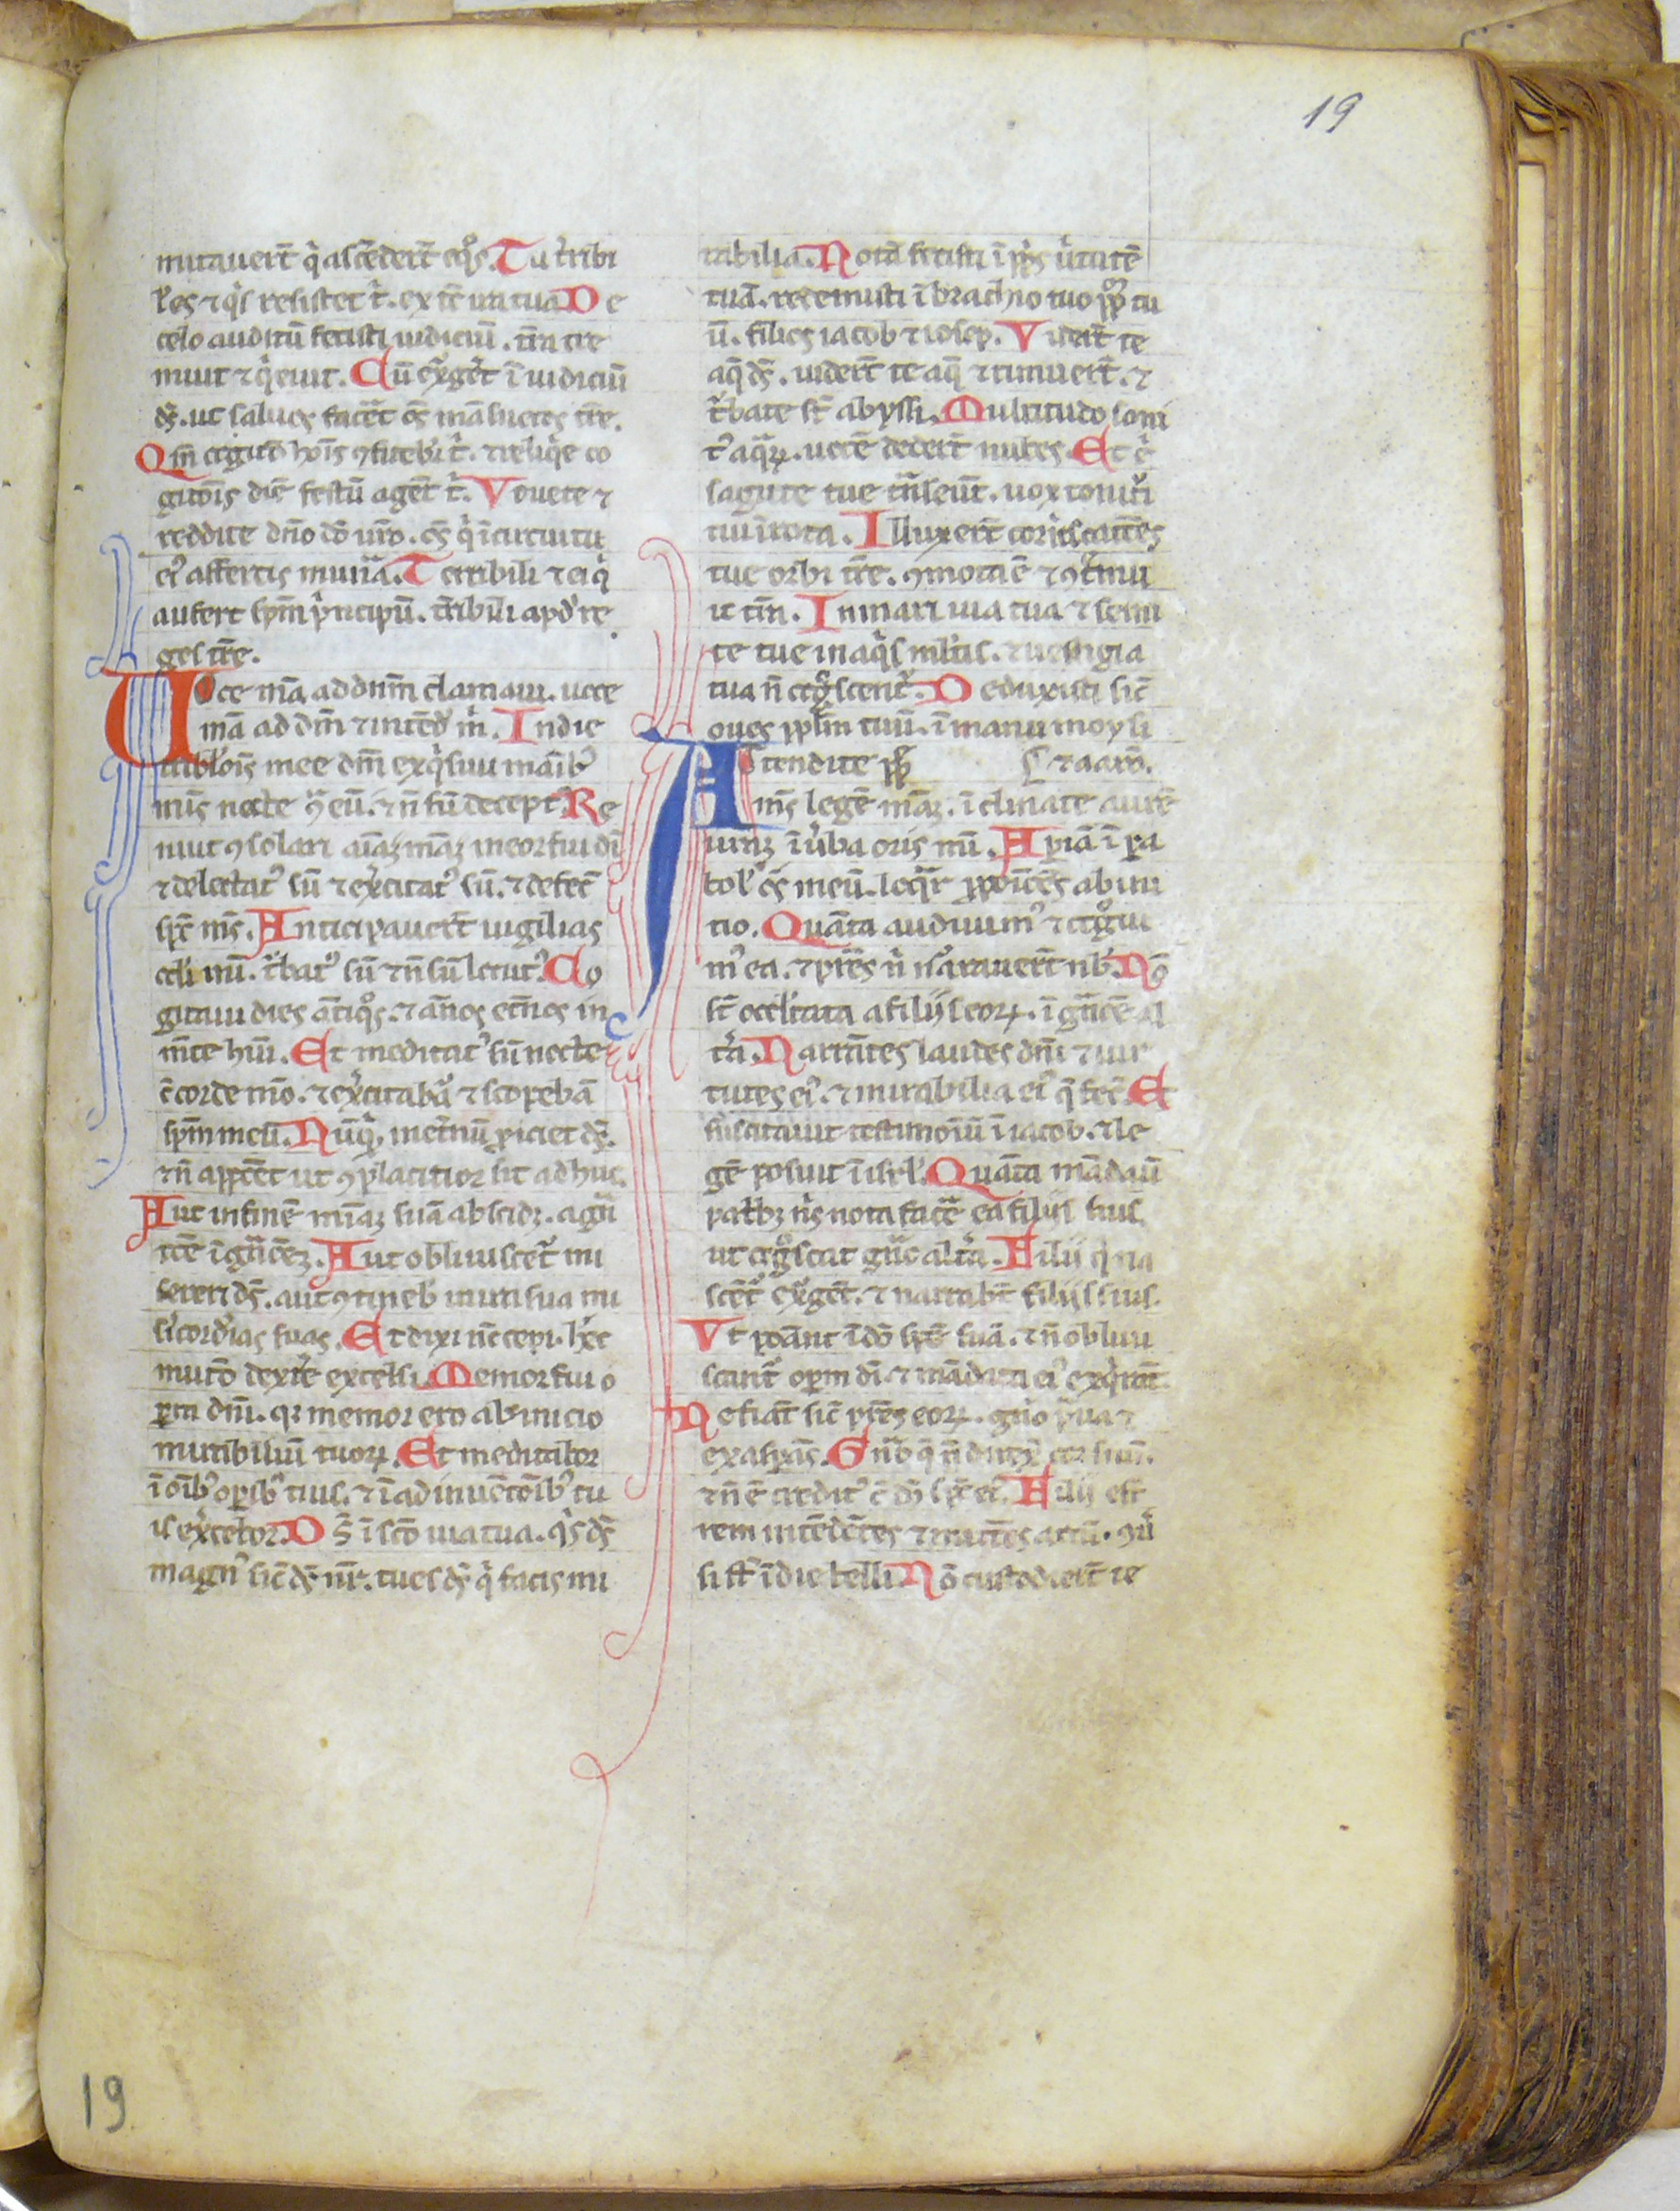 19
mitauert̄ q̇ ascēdert̄ eq̊s. Tu t̄ribi
l'es ⁊ q̇s resistet t̄. ex tc̄ ira tua De
celo auditū fecisti iudiciū. tr̄a tre
muit ⁊ q̇euit. Cū exġet ī iudiciū
ds̄. ut saluos facȇt os̄ māsuetos tr̄e.
Qm̄ cogitō hoīs ꝯfitebit̄ t̄. ⁊ reliq̇e co
gitōis diē festū agēt t̄. Vouete ⁊
reddite dn̄o dō uro. os̄ q̇ ī circuitu
ei᾽ affertis mun̄a. Terribili ⁊ ei q̇
aufert sp̄m ṗncipū. t̄ribili apd' re
ges tr̄e.
Uoce mā ad dn̄m clamaui. uoce
mā ad dm̄ ⁊ intēd' m̄. In die
tribl'ois mee dm̄ exq̇siui māib᾽
mīs nocte ꝯ̄ eū. ⁊ n̄ sū decept᾽. Re
nuit ꝯsolari aīaꝫ māꝫ memor fui di
⁊ delectat᾽ sū ⁊ ex̄citat᾽ sū. ⁊ defec̄
sps̄ ms̄. Anticipauert̄ uigilias
ocl'i mī. t̄bat᾽ sū ⁊ n̄ sū locut᾽. Co
gitaui dies ātiq̊s. ⁊ āños et̄nos in
m̄te hui. Et meditat᾽ sū nocte
c̄ corde mō. ⁊ ex̄citabar̄ ⁊ scopebā
sp̄m meū. Nūq̇ꝫ inet̄nū ꝓiciet ds̄.
⁊ n̄ appōet ut ꝯplacitior sit adhuc.
Aut in finē mīaꝫ suā abscidꝫ. agn̄a
tōe ī gn̄coēꝫ. Aut obliuiscet̄ mi
sereri ds̄. aut ꝯtineb' ī ira sua mi
sicordias suas. Et dixi nc̄ cepi. hec
mutō dexte excelsi. Memor fui o
ꝑm dn̄i. qꝛ memor ero ab inicio
mirabiliū tuoꝝ. Et meditabor
ī oīb᾽ oꝑib᾽ tuis. ⁊ ī adinuētōib᾽ tu
is ex̄cebor. Ds̄ ī scō uia tua. q̇s ds̄
magn᾽ sic̄ ds̄ nr̄. tu es ds̄ q̇ facis mi
rabilia. Notā fecisti ī ppl'is u̇tutē
tuā. redemisti ī brachio tuo ppl'm tu
ū. filios iacob ⁊ iosep. Videt̄ te
aq̄ ds̄. uidert̄ te aq̄ ⁊ timuert̄. ⁊
t̄bate st̄ abyssi. Multitudo soni
t᾽ aq̄ꝝ. uocē dedert̄ nubes. Et e
sagitte tue tn̄seūt. uox tonitr̄i
tui ī rota. Illuxert̄ coruscatōes
tue orbi tr̄e. ꝯmota ē ⁊ ꝯtmu
it tr̄a. In mari uia tua ⁊ semi
te tue in aq̇s ml'tis. ⁊ uestigia
tua n̄ cog̊scent̄. Deduxisti sic̄
oues ppl'm tuū. ī manu moysi
⁊ aarō.
Attendite ppl'e
ms̄ legē māꝫ. ī clinate aurē
urāꝫ ī u̇ba oris mī. Aꝑiā ī ꝑa
bol' os̄ meū. loq̄r ꝓpoītōes ab ini
tio. Quāta audiuim᾽ ⁊ cog̊ui
m᾽ ea. ⁊ pr̄es n̄i narrauert̄ nb'. Nō
st̄ occl'tata a filijs eoꝝ. ī gn̄coē al
tr̄a. Narrātes laudes dn̄i ⁊ uir
tutes ei᾽. ⁊ mirabilia ei᾽ q̄ fec̄. Et
suscitauit testimoīū ī iacob. ⁊ le
gē posuit ī isrl'. Quāta mādauit
patbꝫ nr̄is nota facȇ ea filijs suis.
ut cog̊scat gn̄co altr̄a. Filii q̇ na
scēt̄ exġēt. ⁊ narrabt̄ filijs suis.
Vt ponāt ī dō spē suā. ⁊ n̄ obliui
scant̄ oꝑm di ⁊ mādata ei᾽ exq̇rāt.
Ne fiāt sic̄ pr̄es eoꝝ. gn̄o p̄ua ⁊
exasꝑās. Gn̄o q̄ n̄ direx̄ cor suū.
⁊ n̄ ē credit᾽ c̄ dō sps̄ ei᾽. Filii eff
rem intēdētes ⁊ mittētes arcū. ꝯu̇
si st̄ ī die belli. Nō custodiert̄ te
19